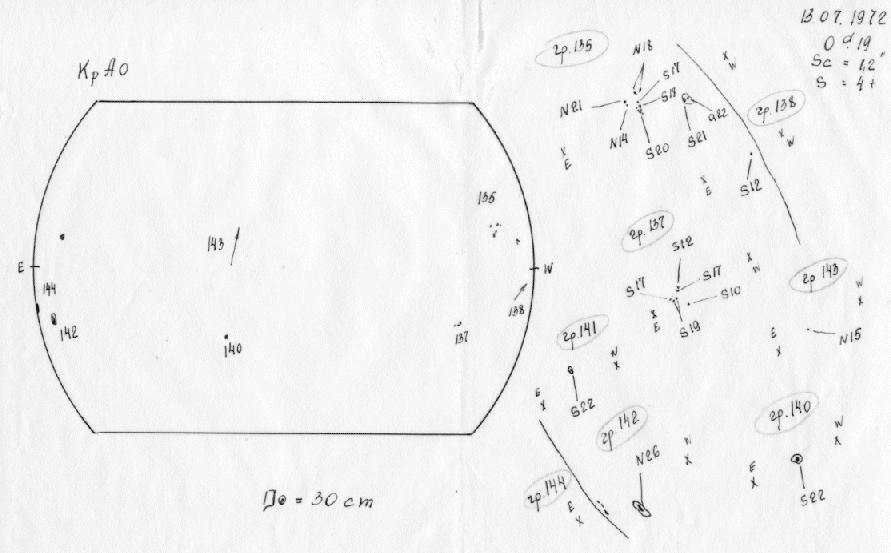 13.07.1972
КрАО
гр.135
N18
S17
S18
N21
N14
S20
S21
X
W
X
E
гр.138
X
W
X
E
S12
135
143
E
W
144
142
140
138
137
гр.137
S12
S17
S17
S10
S19
X
W
X
E
гр.143
W
X
E
X
N15
гр.141
W
X
E
X
S22
гр.142
N26
W
X
гр.140
W
X
E
X
S22
гр.144
E
X
D⊙ = 30 cm